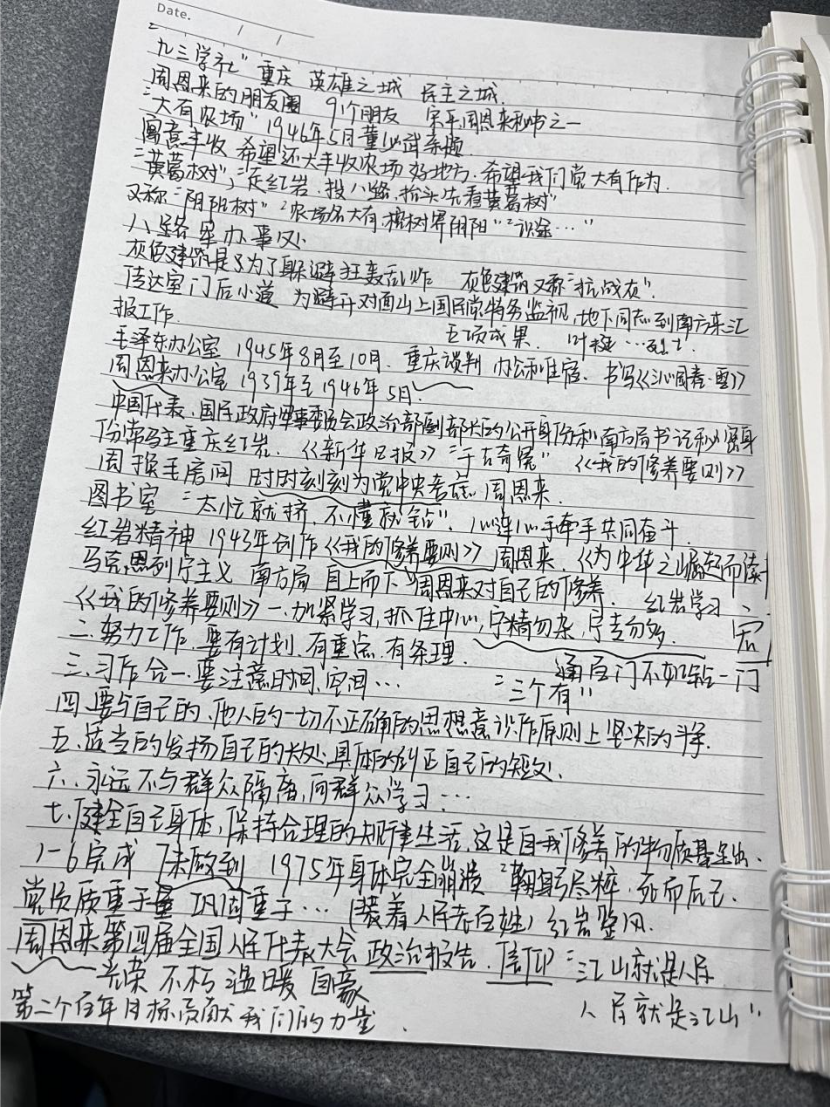 Date.      /      /
"九三学社" 重庆 英雄之城 民主之城.
周恩来的朋友圈 9个朋友 宋平周恩来秘书之一
"大有农场" 1946年5月董必武 题
寓意丰收 希望还大丰收农场好地方.希望我们党大有作为.
"黄葛树",走红岩.投八路.抬头先看黄葛树"
又称"阴阳树" "农场名大有.榕树界阴阳" "误途…"
八路军办事处
灰色建筑是为了躲避狂轰乱炸 灰色建筑又称"抗战灰".
传达室门后小道 为避开对面山上国民党特务监视,地下同志到南方来汇
报工作 五项成果. 叶挺…烈士.
毛泽东办公室 1945年8月至10月. 重庆谈判 办公和住宿. 书写《沁园春·雪》
周恩来办公室 1939年至1946年5月
中国代表.国民政府军事委员会政治部副部长的公开身份和南方局书记秘密身
份常驻重庆红岩. 《新华日报》 "千古奇冤" 《我的修养要则》
周换毛房间 时时刻刻为党中央考虑.周恩来.
图书室 "太忙就挤,不懂就钻". 心连心手牵手共同奋斗.
红岩精神 1943年创作《我的修养要则》周恩来. 《为中华之崛起而读书
马克思列宁主义 南方局 自上而下 "周恩来对自己的修养. 红岩学习
《我的修养要则》一.加紧学习,抓住中心,宁精勿杂,宁专勿多.
二.努力工作.要有计划.有重点.有条理. 通居门不如钻一门
三.习作合一.要注意时间,空间… "三个有"
四.要与自己的.他人的一切不正确的思想意识作原则上坚决的斗争.
五.适当的发扬自己的长处.具体的纠正自己的短处.
六.永远不与群众隔离,向群众学习…
七.健全自己身体,保持合理的规律生活.这是自我修养的物质基础.
1-6完成 7未做到 1975年身体完全崩溃 "鞠躬尽粹.死而后已.
党员质量子量 巩固重子…(装着人民老百姓) 红岩整风.
周恩来第四届全国人民代表大会 政治报告. 信仰 "江山就是人民
光荣 不朽 温暖 自豪 人民就是江山"
第二个百年目标贡献我们的力量.